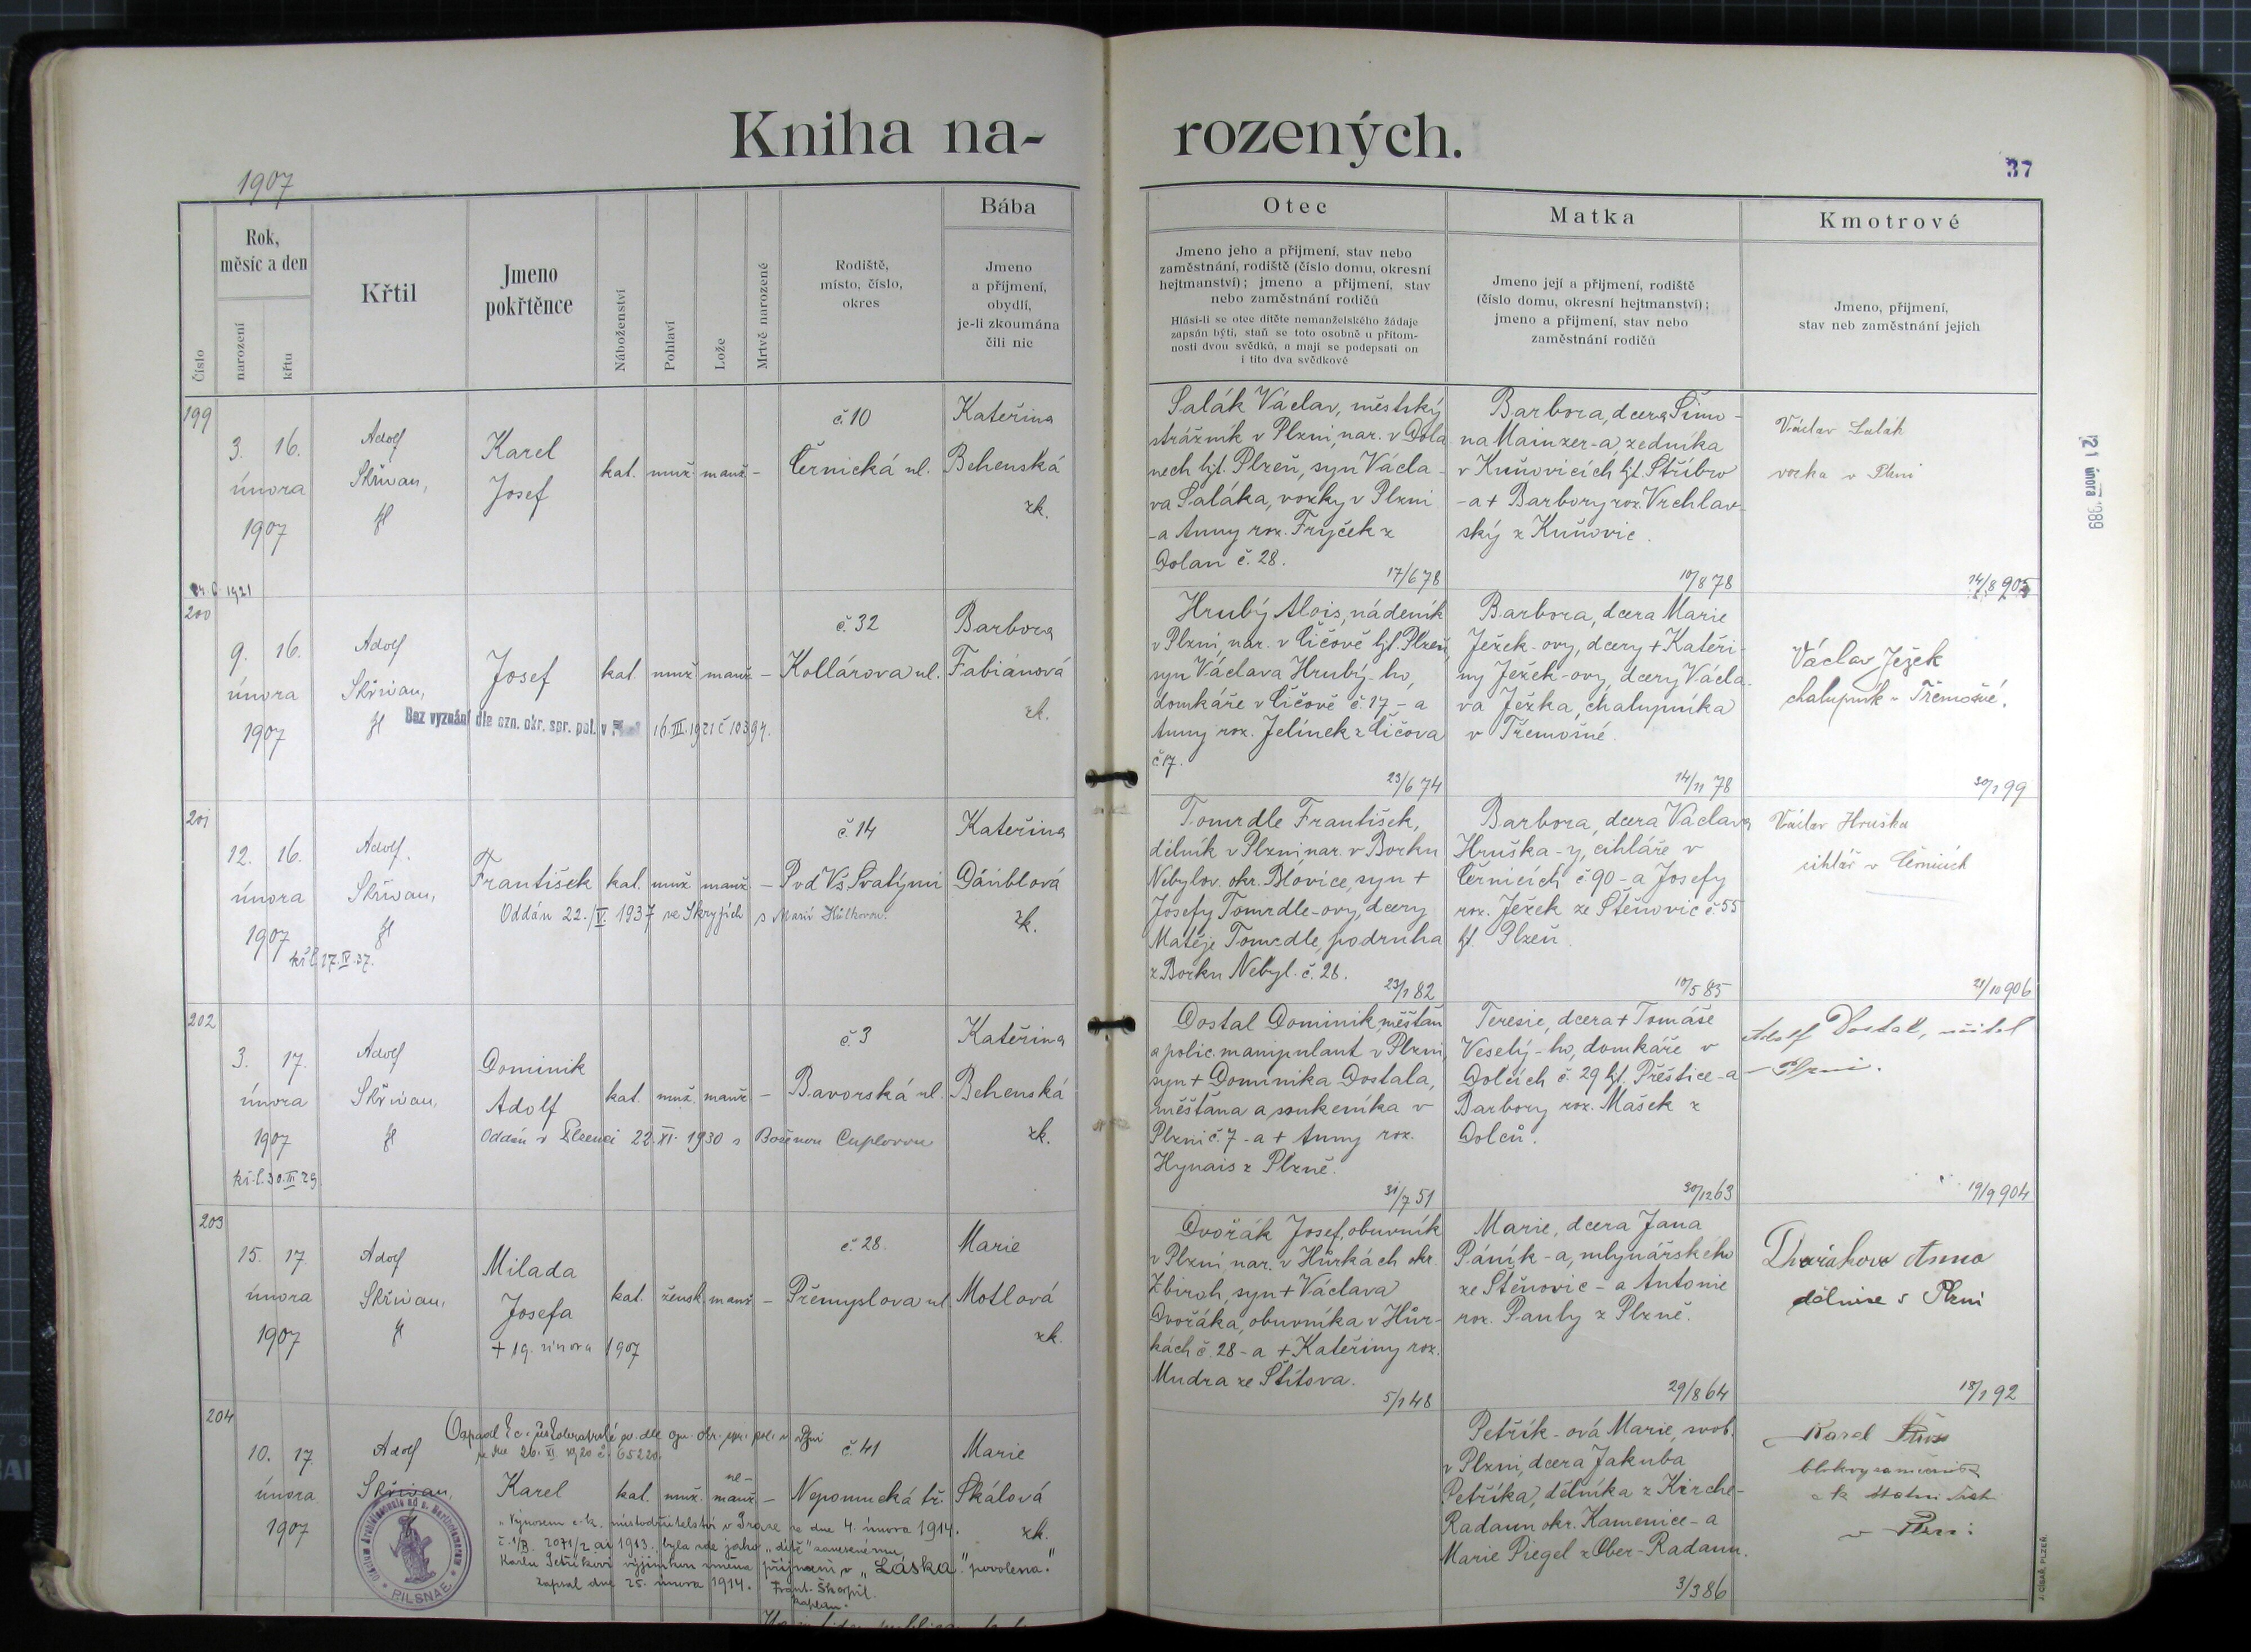 Kniha na-
rozených.
37
1907
Číslo
Rok,
měsíc a den
narození
křtu
Křtil
Jmeno
pokřtěnce
Náboženství
Pohlaví
Lože
Mrtvě narozené
Rodiště,
místo, číslo,
okres
Bába
Jmeno
a přijmení,
obydlí,
je-li zkoumána
čili nic
Otec
Jmeno jeho a přijmení, stav nebo
zaměstnání, rodiště (číslo domu, okresní
hejtmanství); jmeno a přijmení, stav
nebo zaměstnání rodičů
Hlásí-li se otec dítěte nemanželského žádaje
zapsán býti, staň se toto osobně u přítom-
nosti dvou svědků, a mají se podepsati on
i tito dva svědkové
Matka
Jmeno její a přijmení, rodiště
(číslo domu, okresní hejtmanství);
jmeno a přijmení, stav nebo
zaměstnání rodičů
Kmotrové
Jmeno, přijmení,
stav neb zaměstnání jejich
199
3. 16.
února
1907
Adolf
Skřivan,
Karel
Josef
kat. muž. manž. -
č. 10
Černická ul.
Kateřina
Behenská
zk.
Salák Václav, městský
strážník v Plzni, nar. v Dola
nech hjt. Plzeň, syn Václa-
va Saláka, vozky v Plzni
-a Anny roz. Frýček z
Dolan č. 28.
17/6 78
Barbora, dcera Šimo-
na Mainzer-a, zedníka
v Kuňovicích hjt. Stříbro
-a + Barbory roz. Vrchlav-
ský z Kuňovic.
10/8 78
Václav Salák
vozka v Plzni
14/8 905
24. 6. 1921
200
9. 16.
února
1907
Adolf
Skřivan,
Josef
kat. muž. manž. -
č. 32
Kollárova ul.
Barbora
Fabiánová
zk.
Bez vyznání dle ozn. okr. spr. pol. v 16. III. 1921 č 10394.
Hrubý Alois, nádeník
v Plzni, nar. v Číčově hjt. Plzeň,
syn Václava Hrubý-ho,
domkáře v Číčově č. 17 - a
Anny roz. Jelínek z Číčova
č 17.
23/6 74
Barbora, dcera Marie
Ježek-ovy, dcery + Kateři-
ny Ježek-ovy, dcery Václa-
va Ježka, chalupníka
v Třemošné.
14/11 78
Václav Ježek
chalupník v Třemošné.
30/1 99
201
12. 16.
února
1907
Adolf
Skřivan,
František
kat. muž. manž. -
č. 14
Pod Vš. Svatými
Kateřina
Dáiblová
zk.
Oddán 22./V. 1937 ve Skryjích s Marií Hůlkovou.
kř. l. 17. IV. 37.
Tomrdle František,
dělník v Plzni, nar. v Borku
Nebylov. okr. Blovice, syn +
Josefy Tomrdle-ovy, dcery
Matěje Tomrdle, podruha
z Borku Nebyl. č. 26.
23/1 82
Barbora, dcera Václava
Hruška-y, cihláře v
Černicích č 90 - a Josefy
roz. Ježek ze Štěnovic č. 55
hjt. Plzeň.
10/5 85
Václav Hruška
cihlář v Černicích
21/10 906
202
3. 17.
února
1907
kř. l. 30. III. 29
Adolf
Skřivan,
Dominik
Adolf
kat. muž. manž. -
č. 3
Bavorská ul.
Kateřina
Behenská
zk.
Oddán v Plzni 22. XI. 1930 s Boženou Cuplovou
Dostal Dominik, měšťan
a polic. manipulant v Plzni,
syn + Dominika Dostala,
měšťana a soukeníka v
Plzni č. 7 - a + Anny roz.
Hynais z Plzně.
31/7 51
Teresie, dcera + Tomáše
Veselý-ho, domkáře v
Dolcích č. 29 hjt. Přeštice - a
Barbory roz. Mašek z
Dolců.
30/12 63
Adolf Dostal, učitel
v Plzni.
19/9 904
203
15. 17.
února
1907
Adolf
Skřivan,
Milada
Josefa
+ 19. února 1907
kat. žensk. manž. -
č. 28.
Přemyslova ul.
Marie
Motlová
zk.
Dvořák Josef, obuvník
v Plzni, nar. v Hůrkách okr.
Zbiroh, syn + Václava
Dvořáka, obuvníka v Hůr-
kách č. 28 - a + Kateřiny roz.
Mudra ze Štítova.
5/1 48
Marie, dcera Jana
Páník-a, mlynářského
ze Štěnovic - a Antonie
roz. Pauly z Plzně.
29/8 64
Dvořáková Anna
dělnice v Plzni
18/1 92
204
10. 17.
února
1907
Adolf
Skřivan,
ze dne 26. XI. 1920 č. 65220.
Karel
kat. muž. ne-
manž. -
č. 41
Nepomucká tř.
Marie
Skálová
zk.
„Výnosem c. k. místodržitelství v Praze ze dne 4. února 1914.
č. 1/B. 2071/2 ai 1913. byla zde jako „dítě" zanesenému
Karlu Petříkovi výjimkou změna příjmení v „Láska" povolena."
Zapsal dne 25. února 1914. Frant. Škorpil
kaplan.
PILSNAE
Petřík-ová Marie, svob.
v Plzni, dcera Jakuba
Petříka, dělníka z Kirche-
Radaun okr. Kamenice - a
Marie Piegel z Ober-Radaun.
3/3 86
Karel
v Plzni
21 února 1989
J. CÍSAŘ, PLZEŇ.